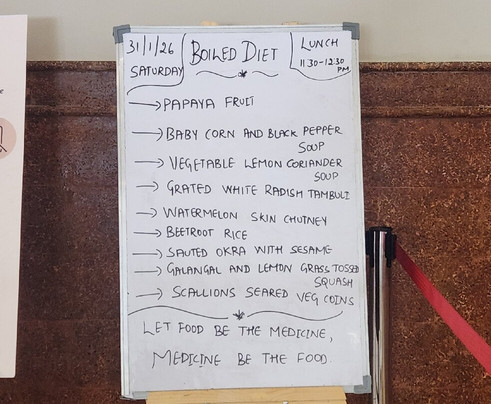 31/1/26
SATURDAY
BOILED DIET
LUNCH
11.30-12.30
PM
→ PAPAYA FRUIT
→ BABY CORN AND BLACK PEPPER
SOUP
→ VEGETABLE LEMON CORIANDER
SOUP
→ GRATED WHITE RADISH TAMBULI
→ WATERMELON SKIN CHUTNEY
→ BEETROOT RICE
→ SAUTED OKRA WITH SESAME
→ GALANGAL AND LEMON GRASS TOSSED
SQUASH
→ SCALLIONS SEARED VEG COINS
LET FOOD BE THE MEDICINE,
MEDICINE BE THE FOOD.